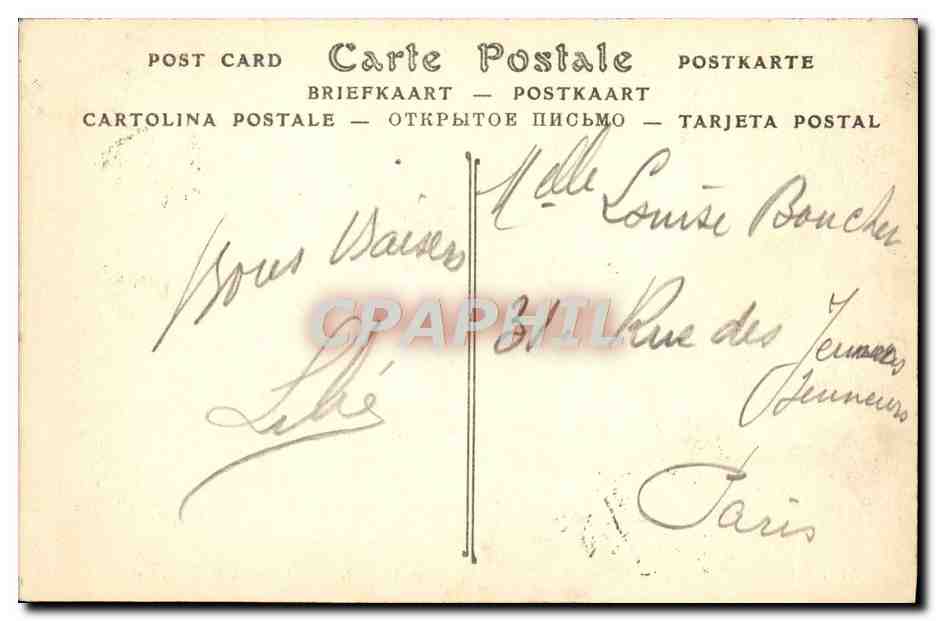 POST CARD Carte Postale POSTKARTE
BRIEFKAART — POSTKAART
CARTOLINA POSTALE — ОТКРЫТОЕ ПИСЬМО — TARJETA POSTAL
Bons Baisers
Lilié
Melle Louise Boucher
31 Rue des
Jeuneurs
Paris
CPAPHIL